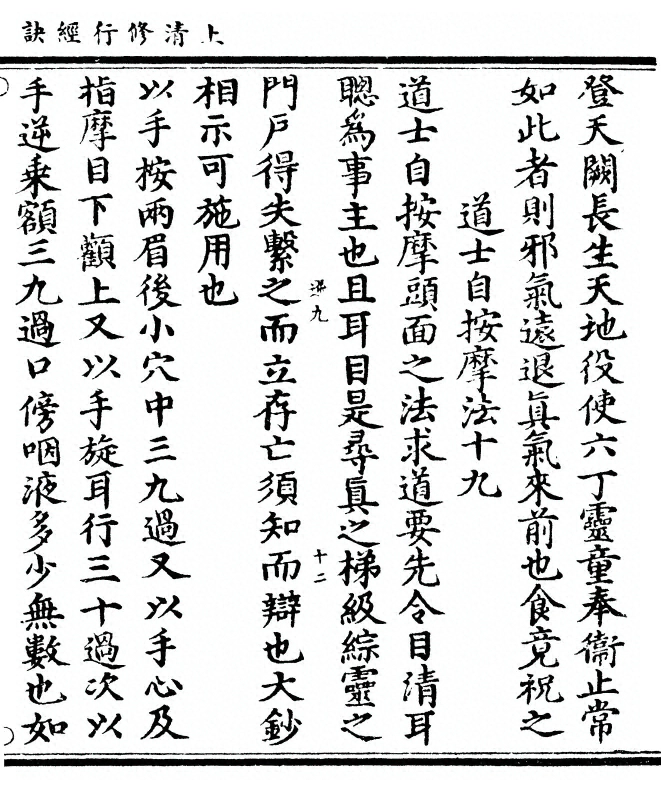 上清修行經訣
登天闕長生天地役使六丁靈童奉衞止常
如此者則邪氣遠退真氣來前也食竟祝之
道士自按摩法十九
道士自按摩頭面之法求道要先令目清耳
聰爲事主也且耳目是尋真之梯級綜靈之
九
十二
門戶得失繫之而立存亡須知而辯也大鈔
相示可施用也
以手按兩眉後小穴中三九過又以手心及
指摩目下顴上又以手旋耳行三十過次以
手逆乘額三九過口傍咽液多少無數也如